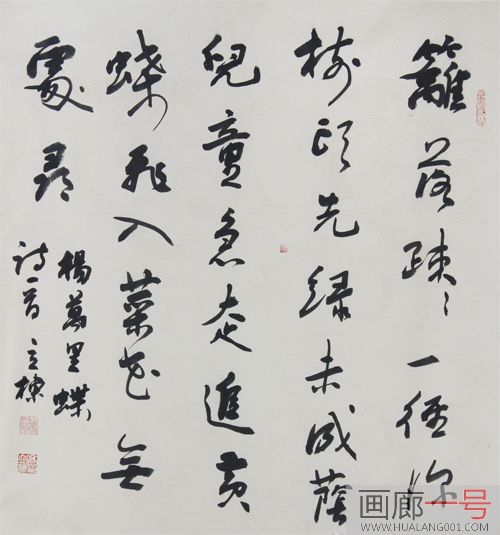 籬落疎々一徑深
樹頭先綠未成蔭
兒童急走追黃
蝶飛入菜花無
處尋
楊萬里蝶
詩一首立棟
画廊一号
WWW.HUALANG001.COM